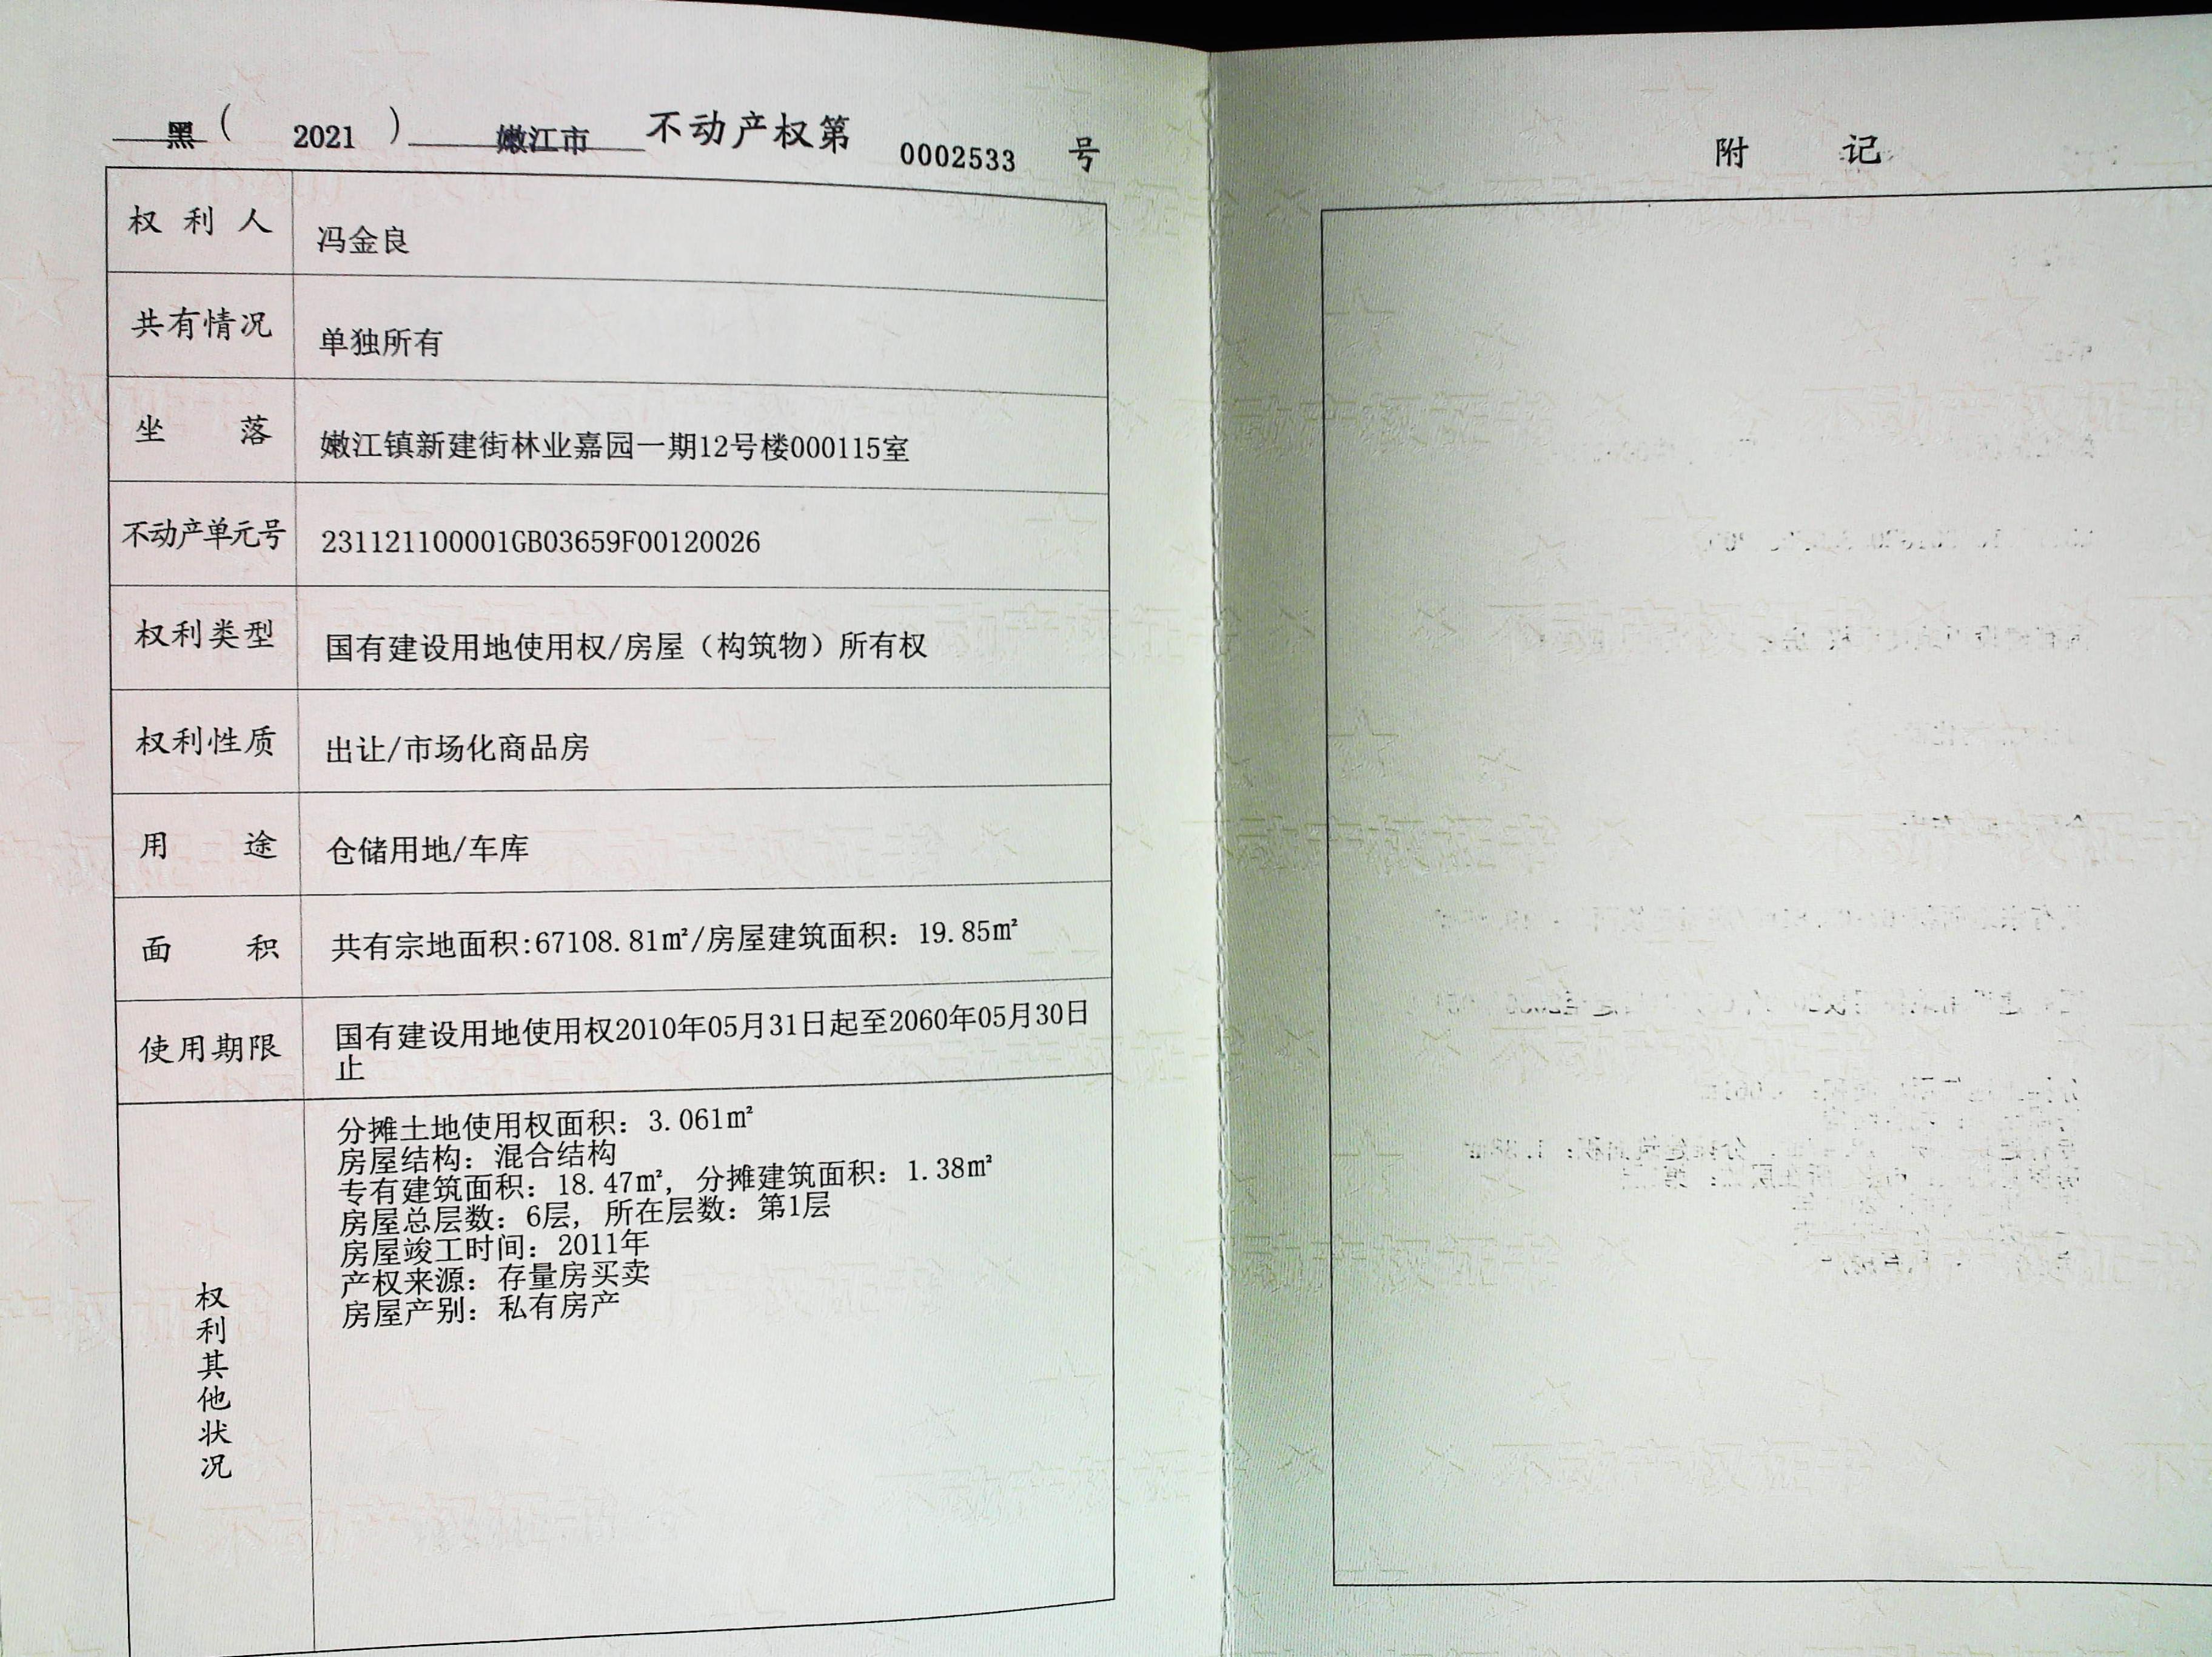 黑（ 2021 ） 嫩江市 不动产权第 0002533 号
权利人 冯金良
共有情况 单独所有
坐落 嫩江镇新建街林业嘉园一期12号楼000115室
不动产单元号 231121100001GB03659F00120026
权利类型 国有建设用地使用权/房屋（构筑物）所有权
权利性质 出让/市场化商品房
用途 仓储用地/车库
面积 共有宗地面积:67108.81㎡/房屋建筑面积：19.85㎡
使用期限 国有建设用地使用权2010年05月31日起至2060年05月30日
止
权利其他状况
分摊土地使用权面积：3.061㎡
房屋结构：混合结构
专有建筑面积：18.47㎡，分摊建筑面积：1.38㎡
房屋总层数：6层，所在层数：第1层
房屋竣工时间：2011年
产权来源：存量房买卖
房屋产别：私有房产
附记